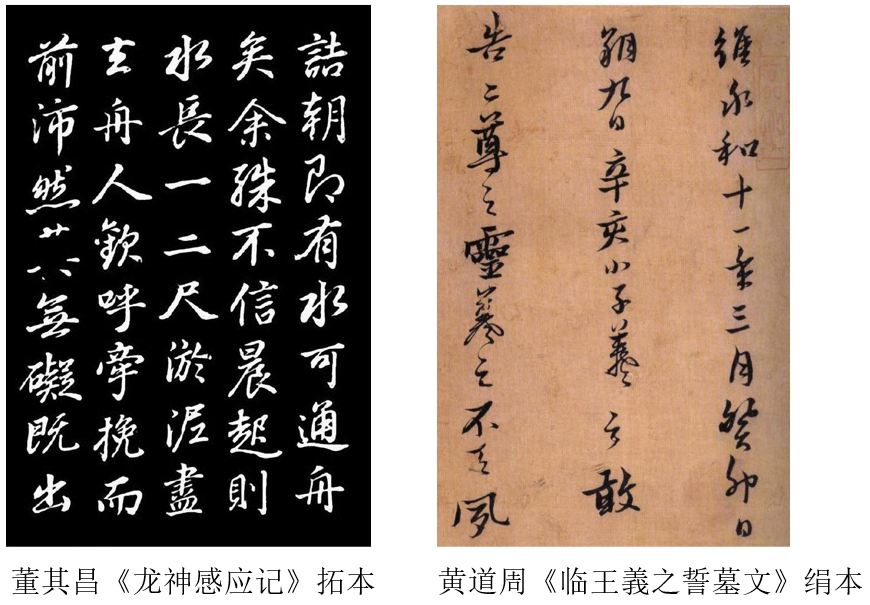 詰朝即有水可通舟
矣余殊不信晨起則
水長一二尺淤泥盡
去舟人歡呼牽挽而
前沛然無礙既出
董其昌《龙神感应记》拓本
維永和十一年三月癸卯日
朔九日辛亥小子羲之敢
告二尊之靈羲之不天夙
黄道周《临王義之誓墓文》绢本